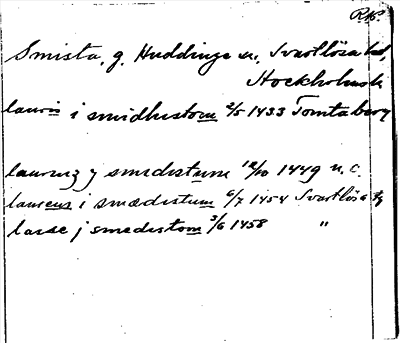 R.K.
Smista, g. Huddinge sn, Svartlösa hd,
Stockholms l.
lauris i smidhistom 2/5 1433 Tomtaberg
laurenz j smedistum 12/10 1449 n. c.
laurens i smædistum 6/7 1454 Svartlösa tg
lasse j smedistom 3/6 1458 "